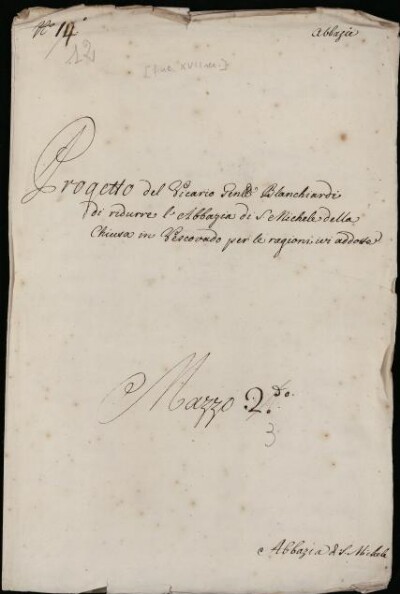 N.º 14
Abbazia
12
[fine XVIII]
Progetto del Vicario Gen.le Blanchiardi
di ridurre l'Abbazia di S. Michele della
Chiusa in Vescovado per le ragioni ivi addotte
Mazzo 2.do
3
Abbazia di S. Michele